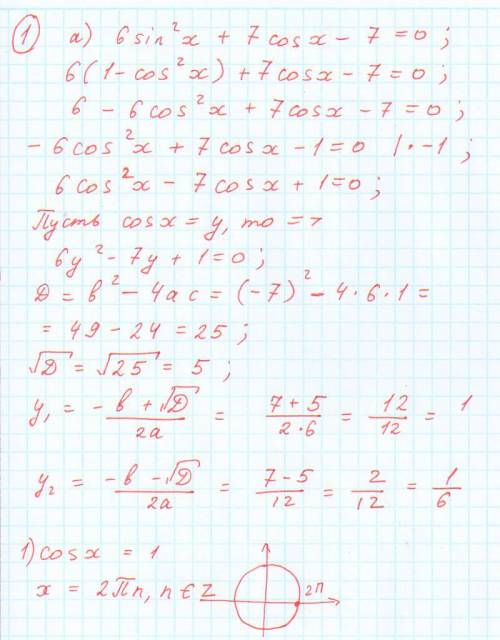 ① а) 6 sin²x + 7 cos x − 7 = 0 ;
6 (1 − cos²x) + 7 cos x − 7 = 0 ;
6 − 6 cos²x + 7 cos x − 7 = 0 ;
− 6 cos²x + 7 cos x − 1 = 0 | · −1 ;
6 cos²x − 7 cos x + 1 = 0 ;
Пусть cos x = y, то =>
6y² − 7y + 1 = 0 ;
D = b² − 4ac = (−7)² − 4 · 6 · 1 =
= 49 − 24 = 25 ;
√D = √25 = 5 ;
y₁ = (−b + √D)/2a = (7 + 5)/(2 · 6) = 12/12 = 1
y₂ = (−b − √D)/2a = (7 − 5)/12 = 2/12 = 1/6
1) cos x = 1
x = 2Пn, n ∈ Z 2П